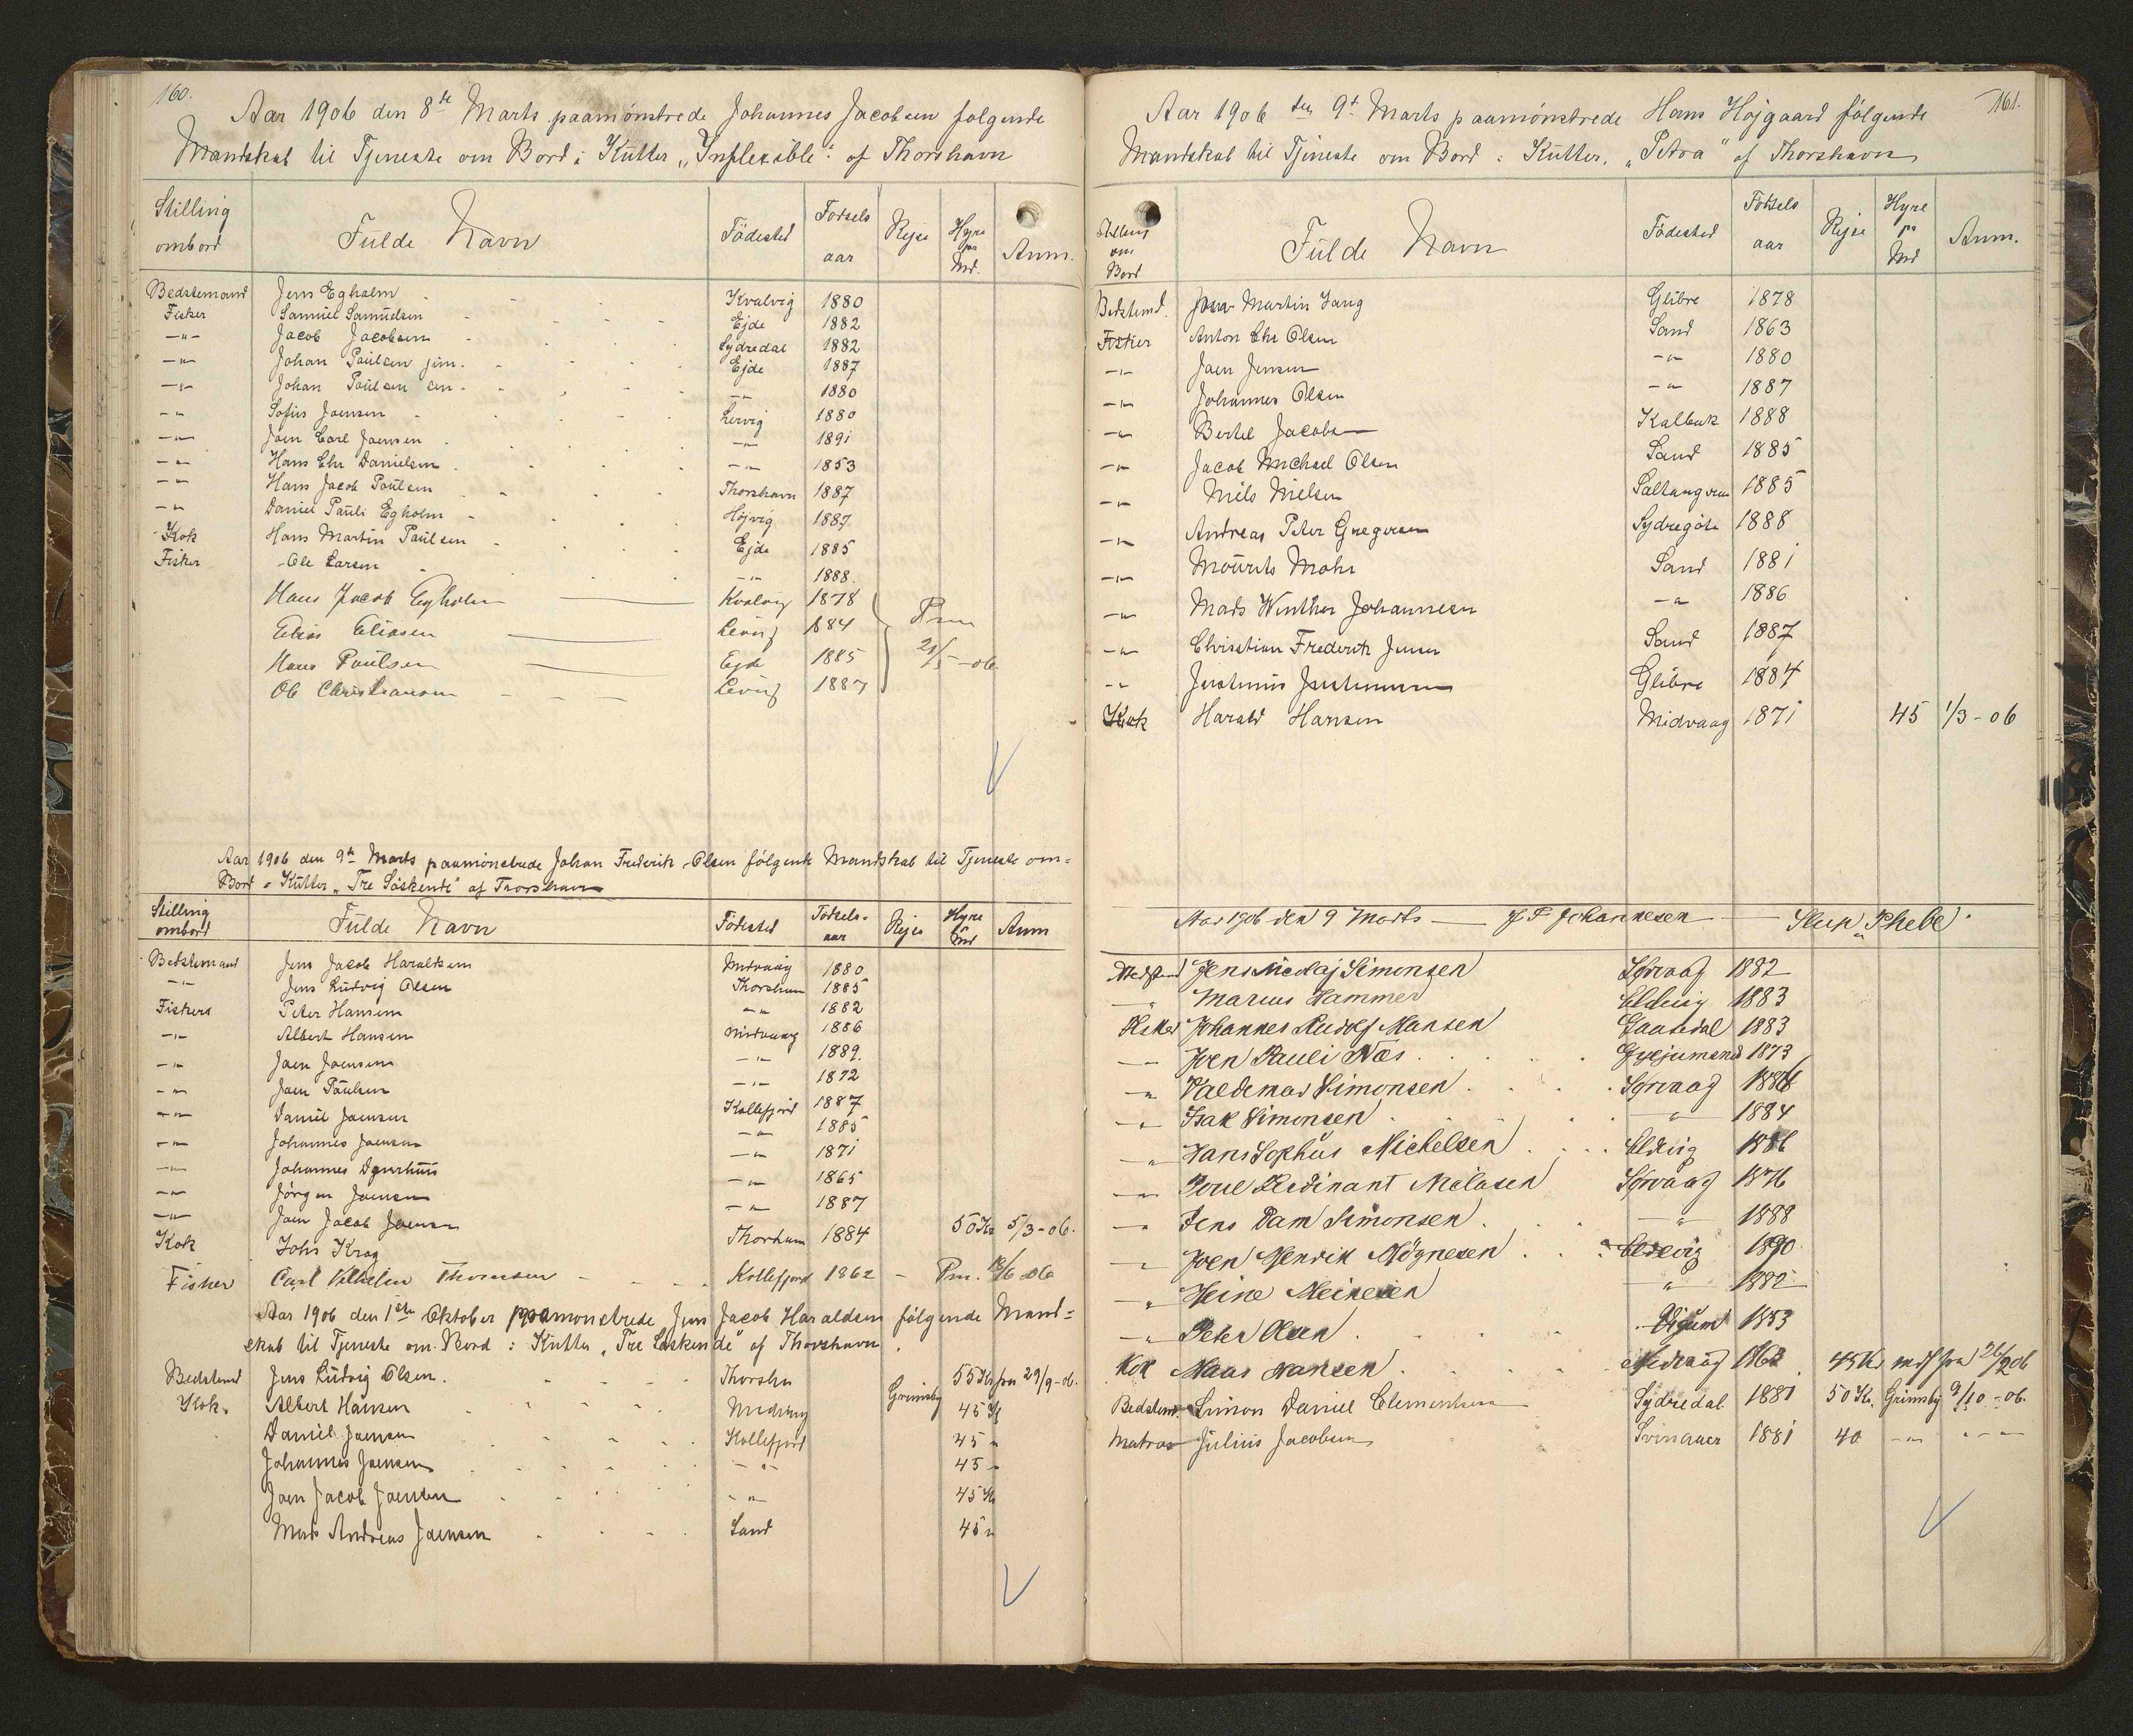 160.
Aar 1906 den 8de Marts paamönstrede Johannes Jacobsen følgende
Mandskab til Tjeneste om Bord i Kutter „Inflexible" af Thorshavn
Stilling ombord Fulde Navn Födested Födselsaar Rejse Hyre pr Md. Anm.
Bedstemand Jens Egholm Kvalvig 1880
Fisker Samuel Samuelsen Ejde 1882
-"- Jacob Jacobsen Sydredal 1882
-"- Johan Paulsen jun. Ejde 1887
-"- Johan Paulsen sen. -"- 1880
-"- Sofus Joensen Lervig 1880
-"- Joen Carl Joensen -"- 1891
-"- Hans Chr Danielsen -"- 1853
-"- Hans Jacob Poulsen Thorshavn 1887
-"- Daniel Pauli Egholm Höjvig 1887
Kok Hans Martin Paulsen Ejde 1885
Fisker Ole Larsen -"- 1888.
Hans Jacob Egholm Kvalvig 1878
Elias Eliasen Lervig 1884
Hans Poulsen Ejde 1885 21/5-06
Ole Christiansen Lervig 1887
Aar 1906 den 9de Marts paamönstrede Johan Frederik Olsen følgende Mandskab til Tjeneste om-
Bord i Kutter „Tre Söskende" af Thorshavn
Stilling ombord Fulde Navn Födested Födsels-aar Rejse Hyre pr Md Anm
Bedstemand Jens Jacob Haraldsen Midvaag 1880
-"- Jens Ludvig Olsen Thorshavn 1885
Fiskere Peter Hansen -"- 1882
-"- Albert Hansen Midvaag 1886
-"- Joen Joensen -"- 1889.
-"- Joen Poulsen -"- 1872
-"- Daniel Joensen Kollefjord 1887
-"- Johannes Joensen -"- 1885
-"- Johannes -"- 1871
-"- Jörgen Joensen -"- 1865
-"- Joen Jacob Joensen -"- 1887
Kok Johs Krog Thorshavn 1884 50 Kr 5/3-06.
Fisker Carl Vilhelm Thomsen Kollefjord 1862 - Pm. 18/6-06
Aar 1906 den 1ste Oktober paamönstrede Jens Jacob Haraldsen følgende Mand-
skab til Tjeneste om Bord i Kutter „Tre Söskende" af Thorshavn.
Bedstemd Jens Ludvig Olsen. Thorshn 55 Kr fra 29/9-06.
Kok. Albert Hansen Midvaag Grimsby 45 Kr
Daniel Joensen Kollefjord 45 "
Johannes Joensen -"- 45 "
Joen Jacob Joensen -"- 45 Kr
Mads Andreas Joensen Sand 45 "
161.
Aar 1906 den 9de Marts paamönstrede Hans Höjgaard følgende
Mandskab til Tjeneste om Bord i Kutter „Petra" af Thorshavn
Stilling om Bord Fulde Navn Födested Födselsaar Rejse Hyre pr Md Anm.
Bedstemd. Martin Glibre 1878
Fisker Anton Chr Olsen Sand 1863
-"- Joen Jensen -"- 1880
-"- Johannes Olsen -"- 1887
-"- Bertel Jacobsen Kalbak 1888
-"- Jacob Michael Olsen Sand 1885
-"- Niels Nielsen Saltangeren 1885
-"- Andreas Peter Gregersen Sydregöte 1888
-"- Mourits Mohr Sand 1881
-"- Mads Winther Johannesen -"- 1886
-"- Christian Frederik Jensen Sand 1887
-"- Justinus Justinussen Glibre 1884
Kok Harald Hansen Midvaag 1871 45 1/3-06
Aar 1906 den 9 Marts — J F Johannesen — Slup „Phebe"
Bedstemd Jens Nicolaj Simonsen Sörvaag 1882
-"- Marius Hammer Eldevig 1883
Fisker Johannes Rudolf Hansen Gaasedal 1883
-"- Joen Pauli Næs Gjejumend 1873
-"- Valdemar Simonsen Sörvaag 1886
-"- Isak Simonsen -"- 1884
-"- Hans Sophus Michelsen Eldvig 1886
-"- Poul Ferdinant Niclasen Sörvaag 1876
-"- Jens Dam Simonsen -"- 1888
-"- Joen Hendrik Mögnesen Eldevig 1890
-"- Heine Heinesen -"- 1882
-"- Peter Olsen 1853
Kok Haas Hansen Midvaag 1862 45 Kr mdl fra 26/2 06
Bedstem. Simon Daniel Clementsen Sydredal 1881 50 Kr. Grimsby 9/10-06.
Matros Julius Jacobsen Svinauer 1881 40 -"- -"-